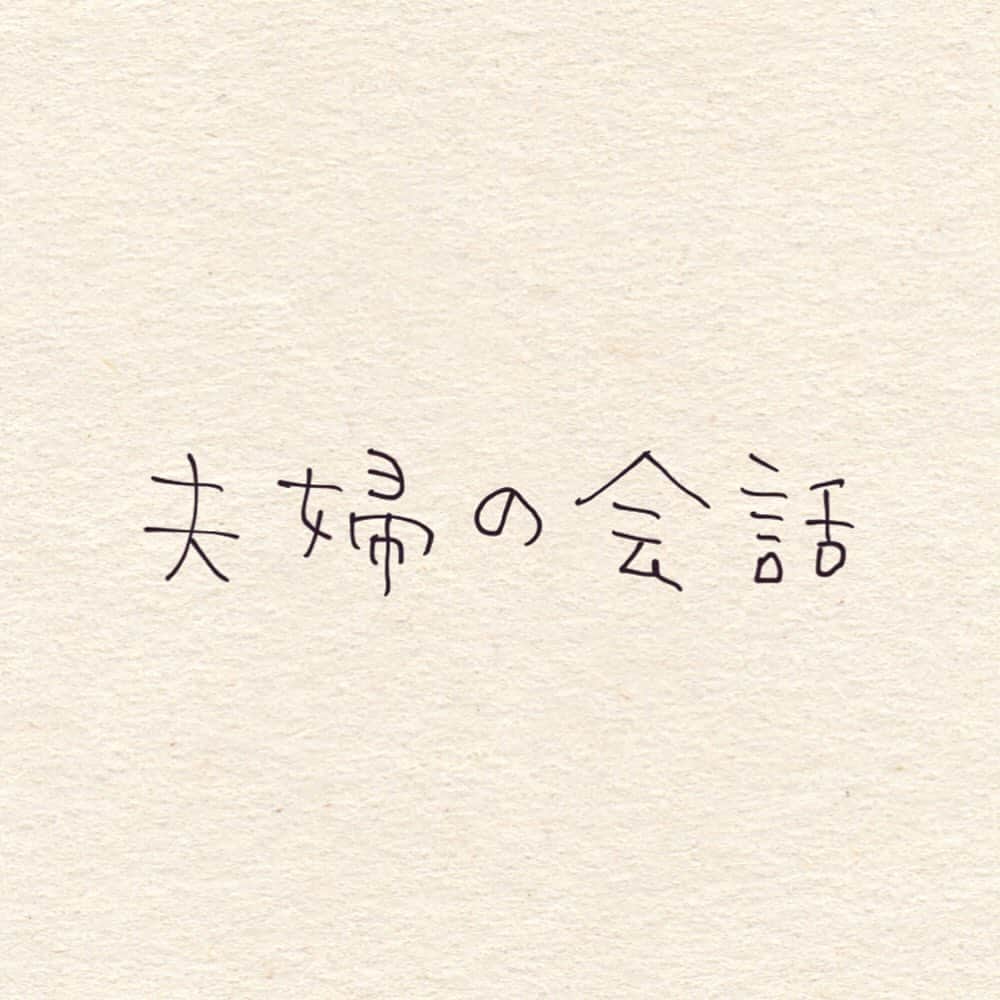 夫婦の会話